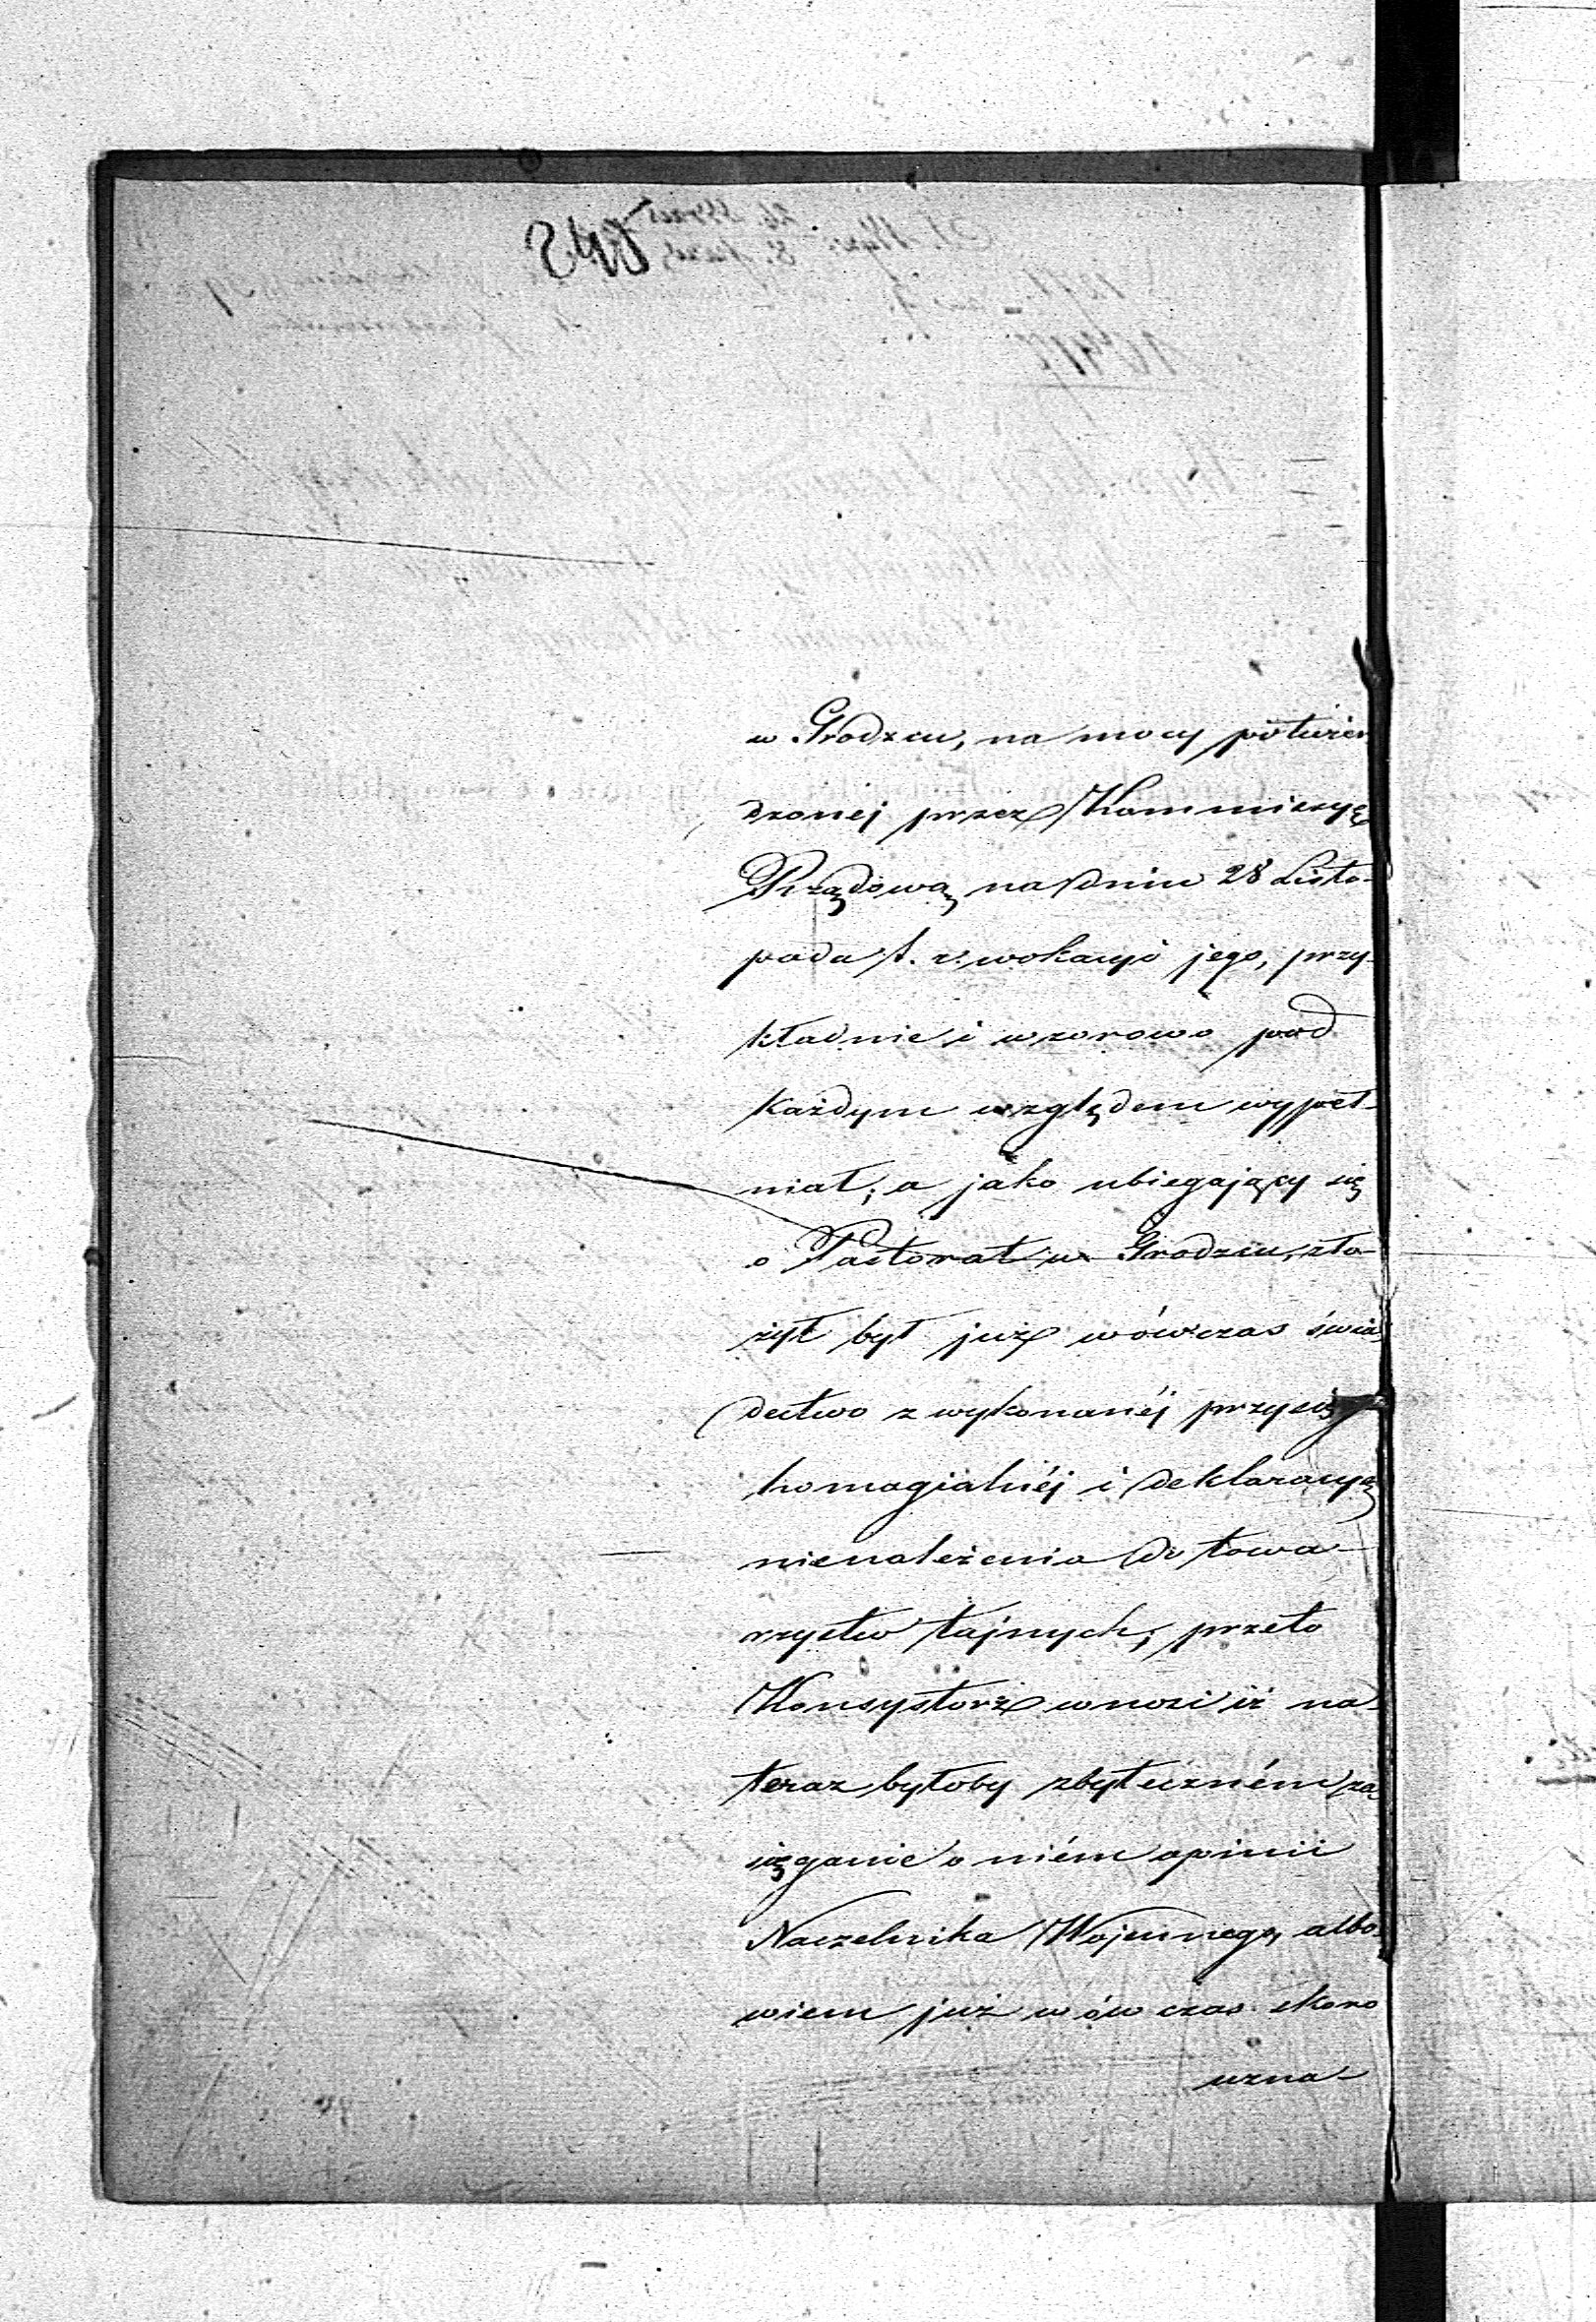 w Grodzcu, na mocy potwier
dzonej przez Kommissyę
Rządową na dniu 28 Listo-
pada t. r. wokacyi jego, przy-
kładnie i wzorowo pod
każdym względem wypeł-
niał; a jako ubiegający się
o Pastorat w Grodzcu, zło-
żył był już wówczas świa-
dectwo z wykonanéj przysię
homagialnéj i deklaracyą
nienależenia do towa-
rzystw tajnych; przeto
Konsystorz wnosi iż na-
teraz byłoby zbyteczném za
sięganie o niém opinii
Naczelnika Wojennego, albo-
wiem już wówczas skoro
uzna-